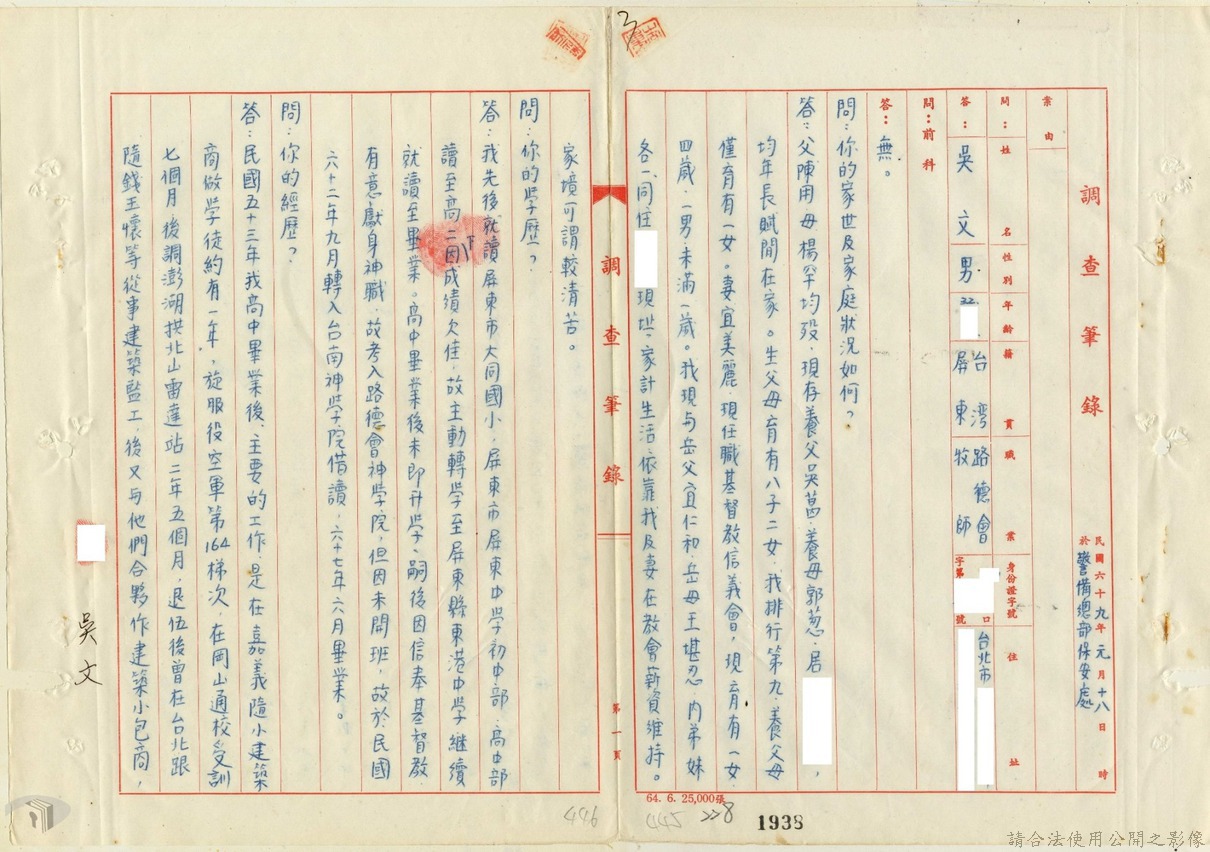 3
調查筆錄
民國六十九年元月十八日 時
於警備總部保安處
案由
問：姓名 性別 年齡 籍貫 職業 身份證字號 住址
答：吳文 男 台灣屏東 路德會牧師 字第 號 口 台北市
問：前科
答：無。
問：你的家世及家庭狀況如何？
答：父陳用母楊罕均歿，現存養父吳葛、養母郭葱，居 ，
均年長賦閒在家。生父母育有八子二女，我排行第九，養父母
僅育有一女。妻宜美麗，現任職基督教信義會，現育有一女
四歲，一男未滿一歲。我現与岳父宜仁和、岳母王堪忍、內弟妹
各一同住 現址，家計生活依靠我及妻在教會薪資維持。
64. 6. 25,000張
445
228
1938
調查筆錄
第一頁
家境可謂較清苦。
問：你的学歷？
答：我先後就讀屏東市大同國小，屏東市屏東中学初中部、高中部
讀至高二下因成績欠佳，故主動轉学至屏東縣東港中学繼續
就讀至畢業。高中畢業後未即升学，嗣後因信奉基督教
有意獻身神職，故考入路德會神学院，但因未開班，故於民國
六十二年九月轉入台南神学院借讀，六十七年六月畢業。
問：你的經歷？
答：民國五十三年我高中畢業後，主要的工作是在嘉義隨小建築
商做学徒約有一年，旋服役空軍第164梯次，在岡山通校受訓
七個月後調澎湖拱北山雷達站二年五個月，退伍後曾在台北跟
隨錢玉懷等從事建築監工，後又与他們合夥作建築小包商，
446
吳文
請合法使用公開之影像